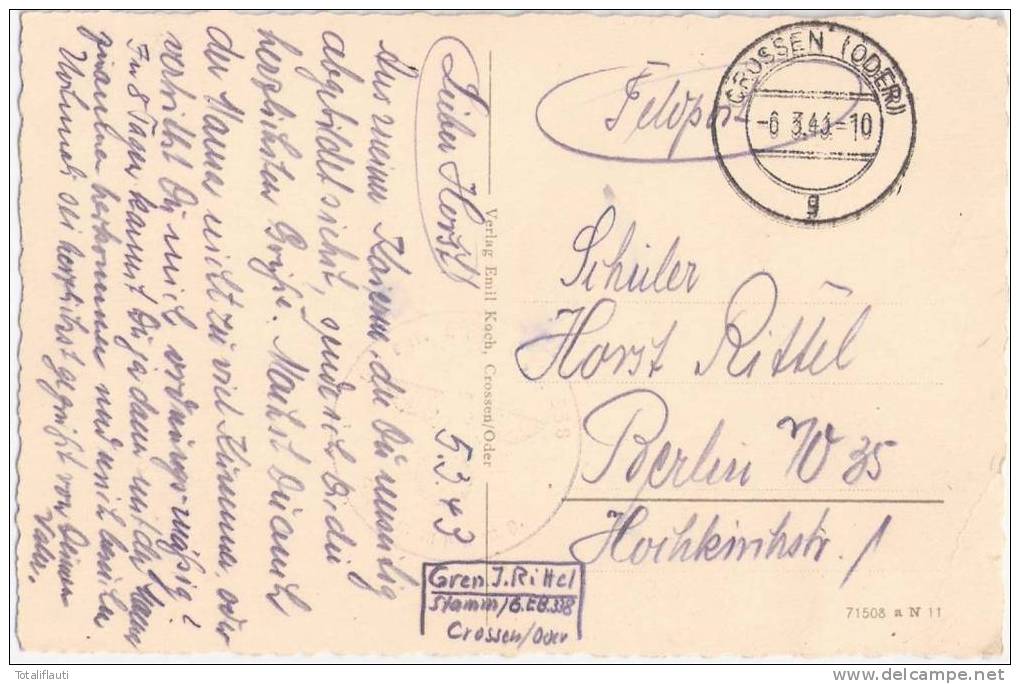 Lieber Horst!
5.3.43
Aus meiner Kaserne, die Du umseitig
abgebildet siehst, sende ich Dir die
herzlichsten Grüße. Machst Du auch
der Mama nicht zu viel Kummer, oder
vertrittst Du mich ordnungsmäßig?
In 8 Tagen kannst Du ja dann mit der Mama
herkommen und mich
sei herzlichst gegrüßt von Deinem
Vater.
Verlag Emil Koch, Crossen/Oder
Feldpost
CROSSEN (ODER)
-6 3.43.-10
g
Schüler
Horst Rittel
Berlin W 35
Hochkirchstr. 1
Gren. J. Rittel
Stamm/G.E.B. 338
Crossen/Oder
71508 a N 11
Totaliflauti
www.delcampe.net